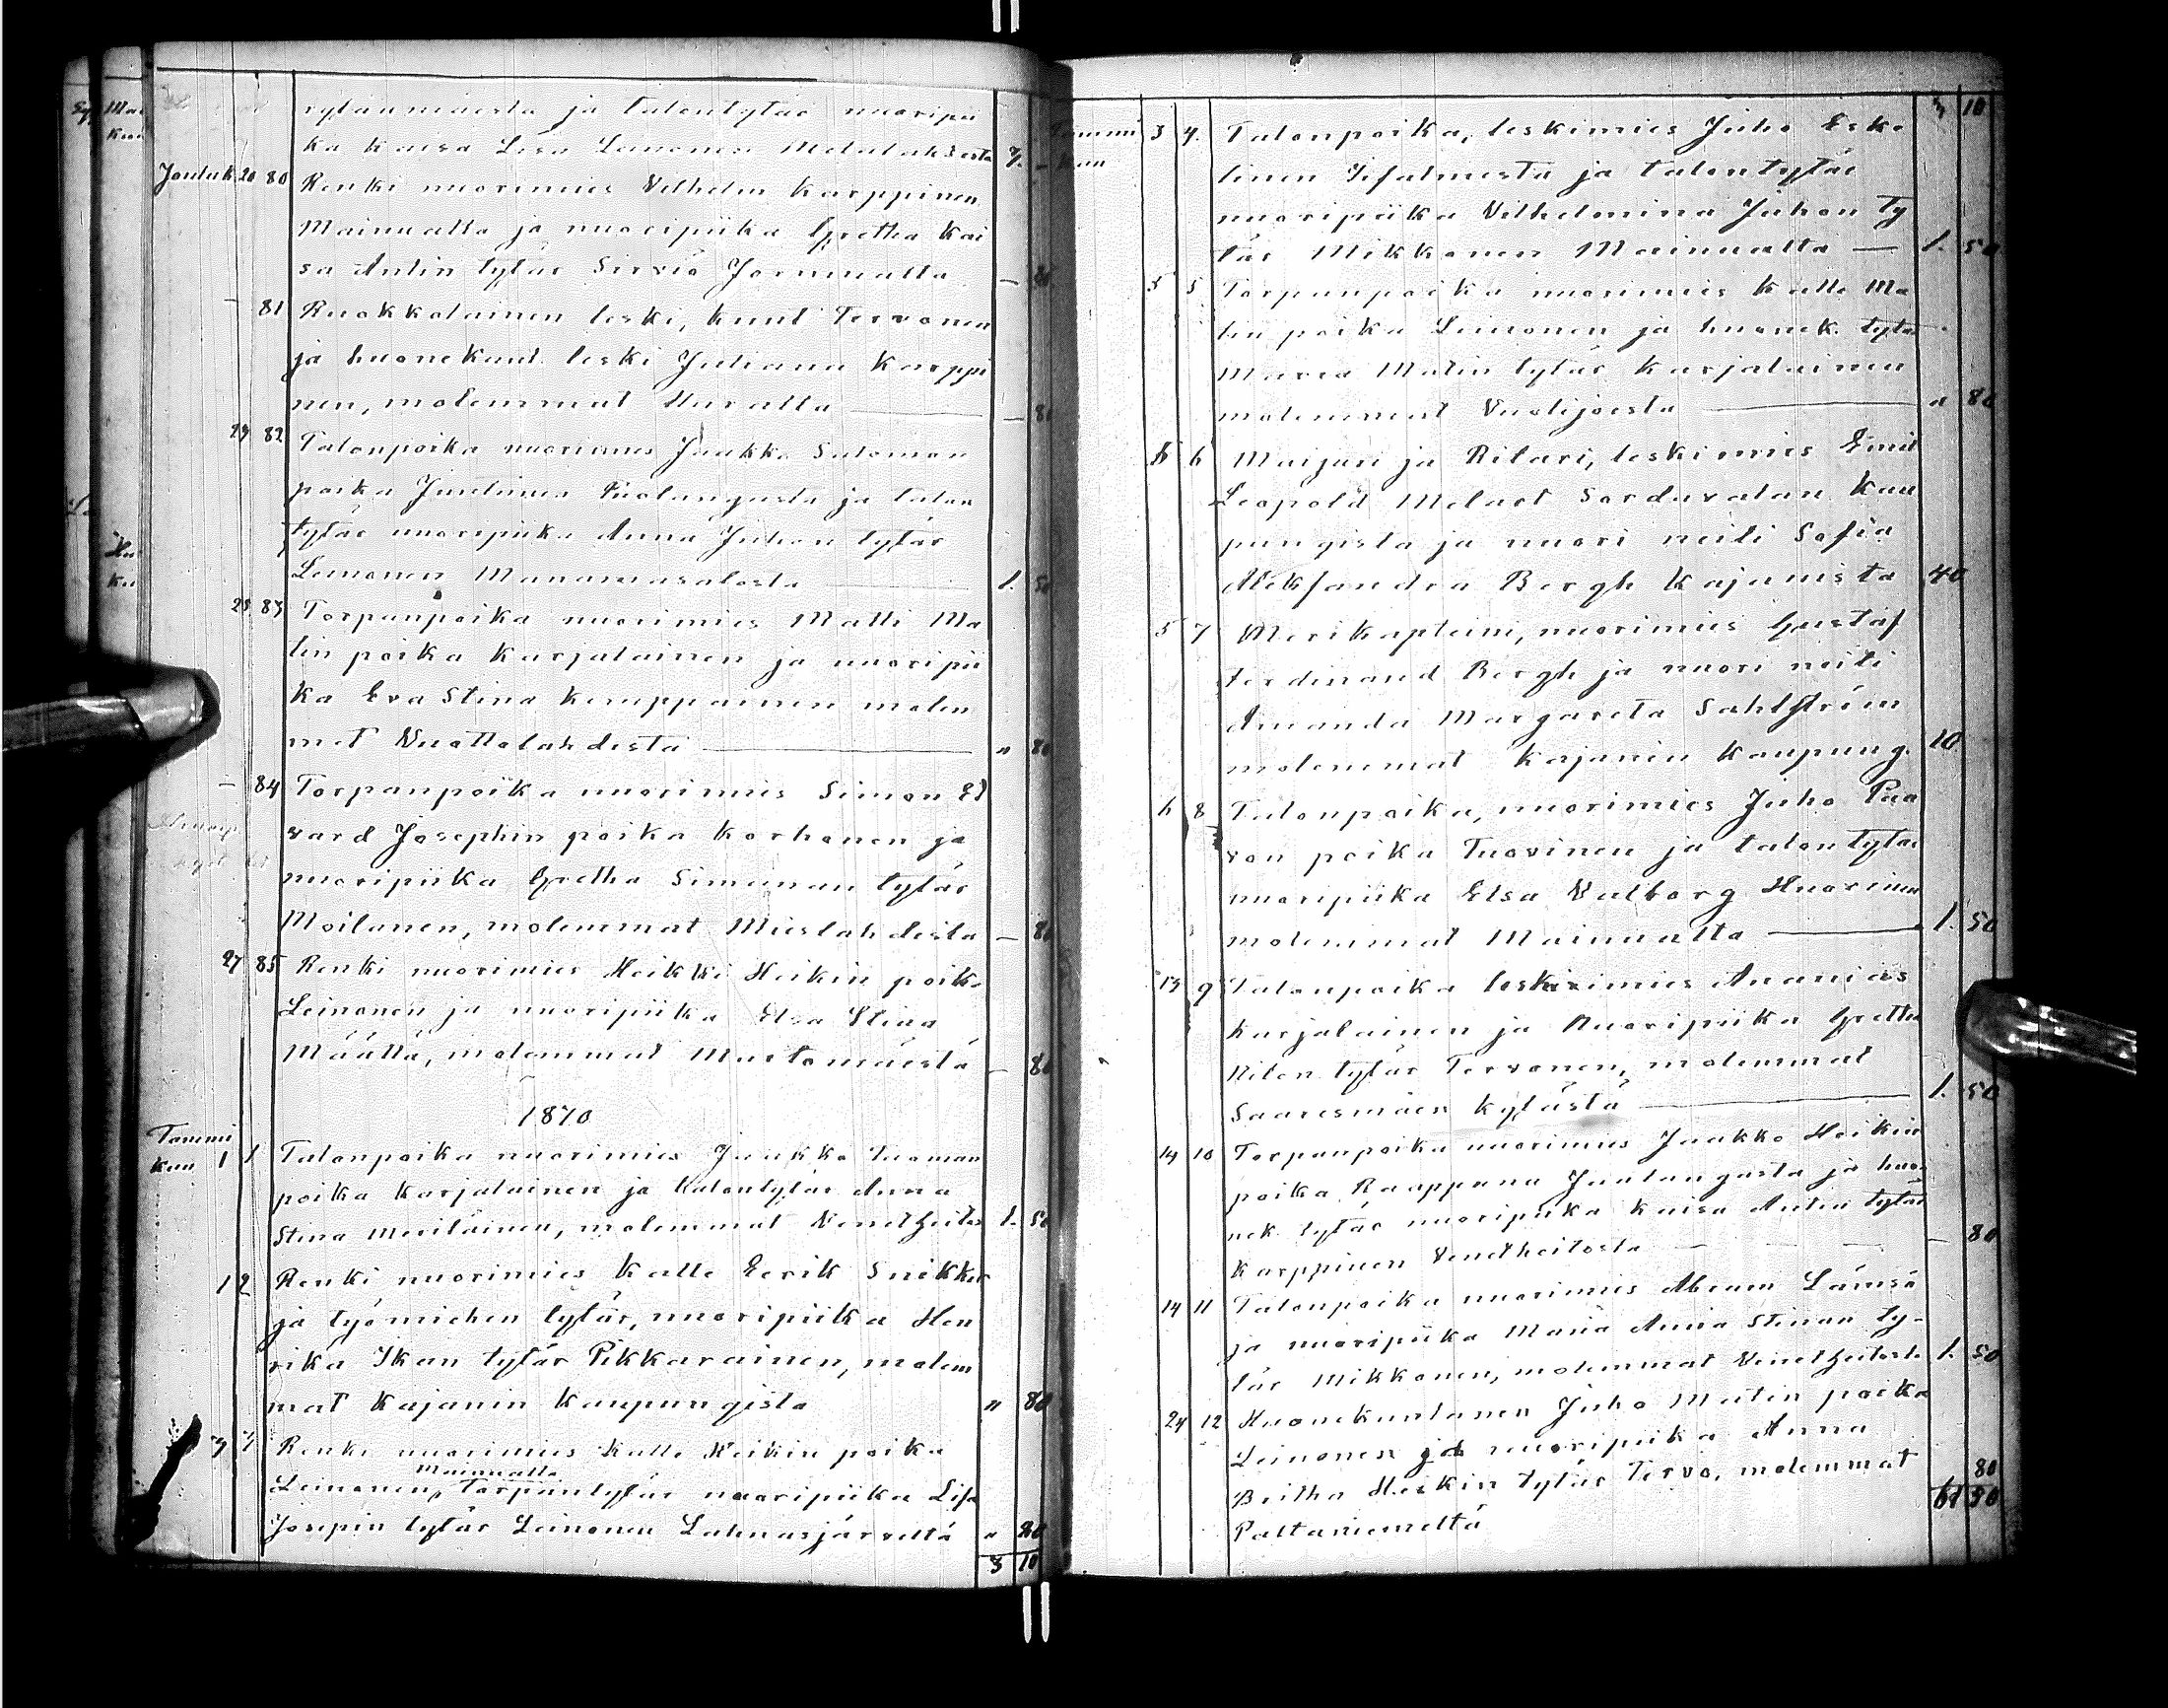 rylänmäestä ja talontytär nuoripii
ka Kaisa Lisa Leinonen Melalahdesta 7. -
Jouluk. 20 80 Renki nuorimies Vilhelm Karppinen
Mainualta ja nuoripiika Gretha Kai
sa Antin tytär Sirviö Jormualta - 80
- 81 Ruokkolainen leski, Knut Tervonen
ja huonekunt. leski Juliana Karppi
nen, molemmat - 80
23 82 Talonpoika nuorimies Jaakko Salomon
poika Juntunen Puolangasta ja talon
tytär nuoripiika Anna Juhon tytär
Leinonen Manamansalosta 1. 50
25 83 Torpanpoika nuorimies Matti Ma
tin poika Karjalainen ja nuoripii
ka Eva Stina Kemppainen molem
mat Vuottolahdesta " 80
- 84 Torpanpoika nuorimies Simon Ed
vard Josephin poika Korhonen ja
nuoripiika Gretha Simunan tytär
Moilanen, molemmat Mieslahdesta - 80
27 85 Renki nuorimies Heikki Heikin poika
Leinonen ja nuoripiika Elsa Stina
Määttä, molemmat Murtomäestä - 80
1870
Tammi
kuu 1 1 Talonpoika nuorimies Jaakko Tuoman
poika Karjalainen ja talontytär Anna
Stina Meriläinen, molemmat Venetheitos 1. 50
1 2 Renki nuorimies Kalle Eerik Snikker
ja työmiehen tytär, nuoripiika Hen
rika Ikan tytär Pikkarainen, molem
mat Kajanin Kaupungista " 80
3 3 Renki nuorimies Kalle Heikin poika
Mainualta
Leinonen, Torpantytär nuoripiika Lisa
Josepin tytär Leinonen Lahnasjärveltä " 80
3 10
3 10
Tammi
kuu 3 4. Talonpoika, leskimies Juho Eske
linen Iisalmesta ja talontytär
nuoripiika Vilhelmina Juhon ty
tär Mikkonen Mainualta - 1. 50
5 5 Torpanpoika nuorimies Kalle Ma
tin poika Leinonen ja huonek. tytär
Maria Matin tytär Karjalainen
molemmat Vuolijoesta " 80
5 6 Maijuri ja Ritari, leskimies Emil
Leopold Melart Sordavalan Kau
pungista ja nuori neiti Sofia
Aleksandra Bergh Kajanista 40
5 7 Merikapteini, nuorimies Gustaf
Ferdinand Bergh ja nuori neiti
Amanda Margareta Sahlström
molemmat Kajanin Kaupung. 10
6 8 Talonpoika, nuorimies Juho Paa
von poika Tuovinen ja talontytär
nuoripiika Elsa Valborg Huovinen
molemmat Mainualta 1. 50
13 9 Talonpoika leskimies Ananias
Karjalainen ja Nuoripiika Gretha
Nilon tytär Tervonen, molemmat
Saaresmäen kylästä 1. 50
14 10 Torpanpoika nuorimies Jaakko Heikin
poika Raappana Puolangasta ja huo
nek tytär nuoripiika Kaisa Antin tytär
Karppinen Venetheitosta - 80
14 11 Talonpoika nuorimies Abram Lämsä
ja nuoripiika Maria Anna Stinan ty-
tär Mikkonen, molemmat Venetheitosta 1. 50
24 12 Huonekuntanen Juho Matin poika
Leinonen ja nuoripiika Anna
Britha Heikin tytär Tervo, molemmat 80
Paltaniemeltä 61 50